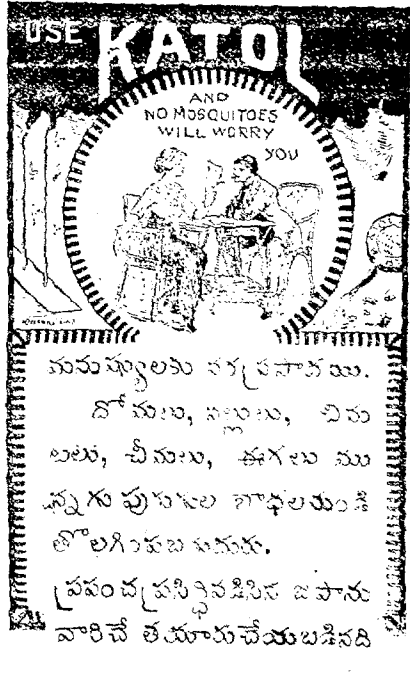 USE KATOL
AND
NO MOSQUITOES
WILL WORRY
YOU
మనుష్యులకు వరప్రసాదము.
దోమలు, నల్లులు, చిమ
టలు, చీమలు, ఈగలు ము
న్నగు పురుగుల బాధలనుండి
తొలగింపబడుదురు.
ప్రపంచప్రసిద్ధినడసిన జపాను
వారిచే తయారుచేయబడినది